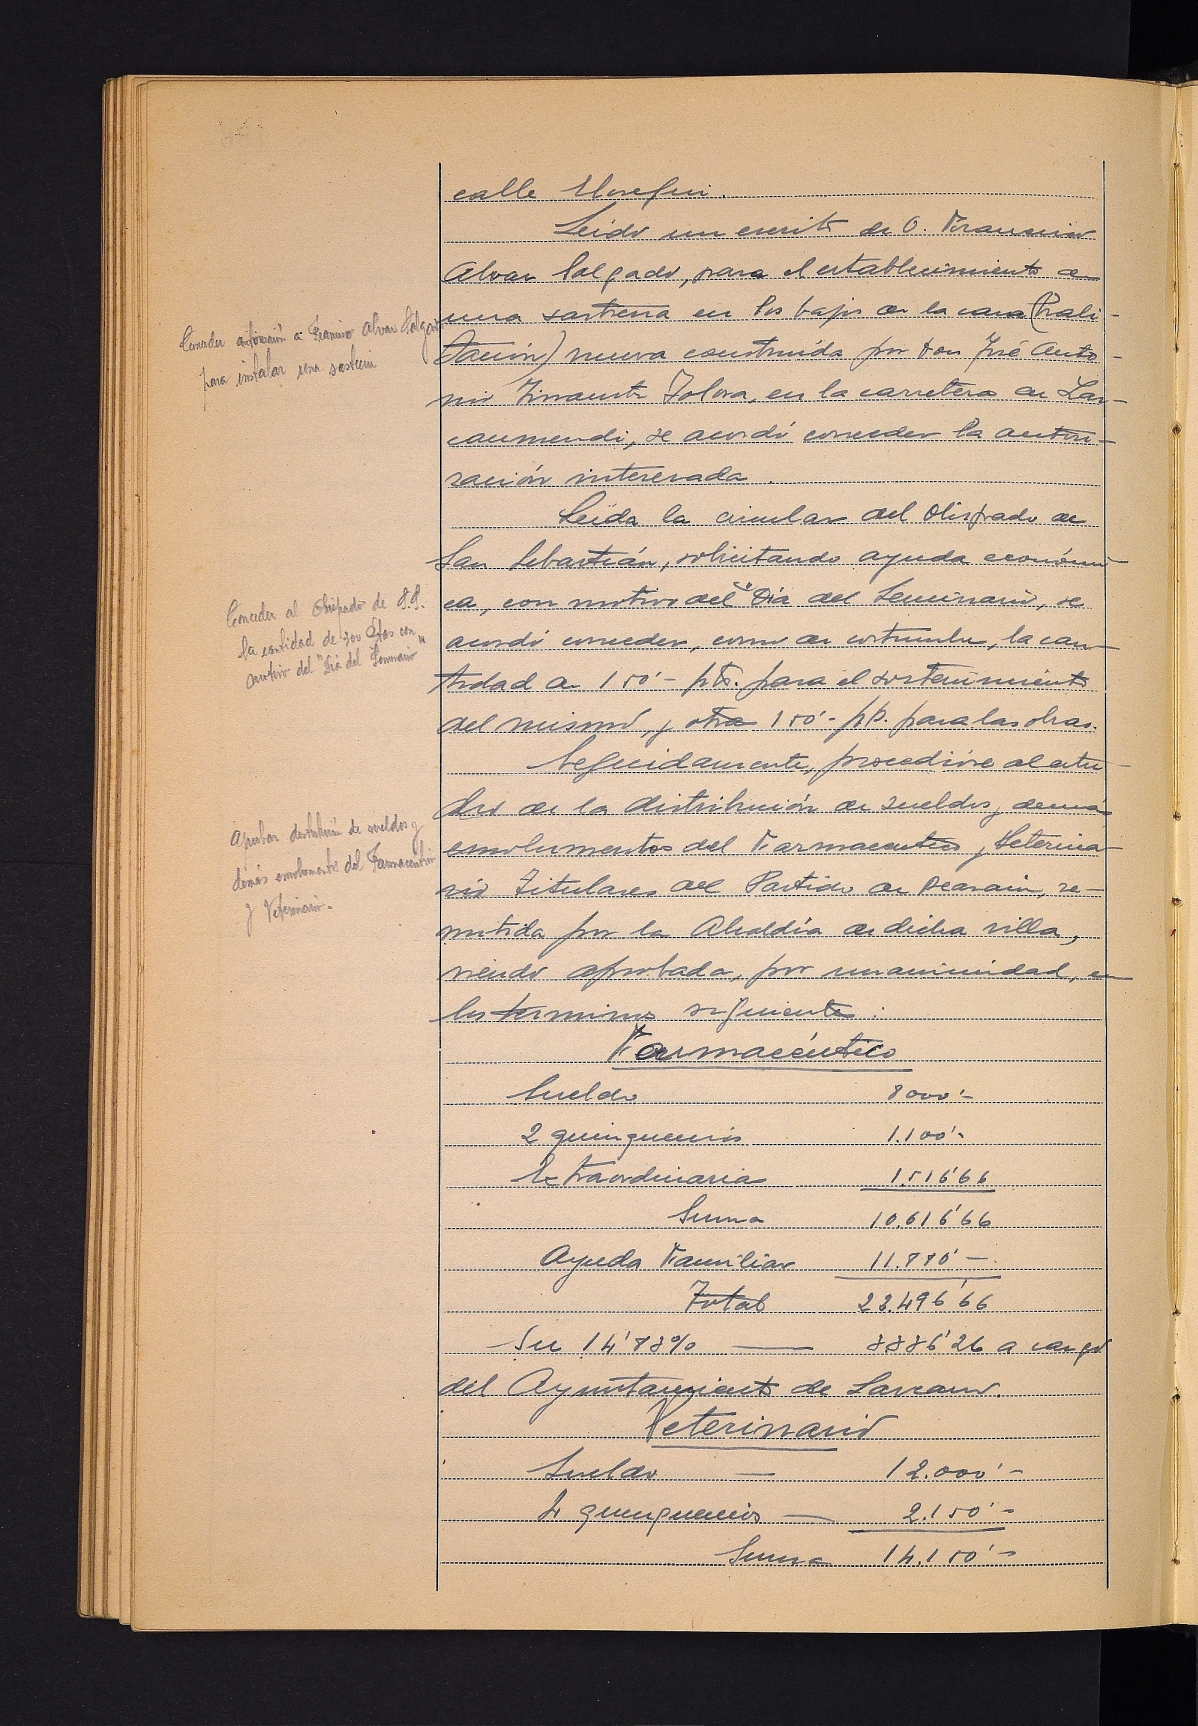 calle Elosegui.
Leido un escrito de D. Francisco
Alvar Salgado, para el establecimiento de
una sastreria en los bajos de la casa (habi-
tación) nueva construida por Don José Anto-
nio en la carretera de Laz-
caumendi, se acordó conceder la autori-
zación interesada.
Leida la circular del Obispado de
San Sebastián, solicitando ayuda económi
ca, con motivo del "Dia del Seminario, se
acordó conceder, como de costumbre, la can
tidad de 150'- pts. para el sostenimiento
del mismo, y otra 150'- pts. para las obras.
Seguidamente, procedióse al estu
dio de la distribución de sueldos y demás
emolumentos del Farmacéutico y Veterina
rio Titulares del Partido de Beasain, re-
mitida por la Alcaldía de dicha villa,
siendo aprobada, por unanimidad, en
los terminos siguientes:
Farmacéutico
Sueldo 8000'-
2 quinquenios 1.100'-
Extraordinarias 1.516'66
Suma 10.616'66
Ayuda Familiar 11.880'-
Total 22.496'66
Su 14'83% — 3336'26 a cargo
del Ayuntamiento de Lazcano.
Veterinario
Sueldo — 12.000'-
4 quinquenios — 2.150'-
Suma 14.150'-
Conceder autorización a Francisco Alvar Salgado
para instalar una sastreria
Conceder al Obispado de S.S.
la cantidad de 300 Ptas con
motivo del "Dia del Seminario"
Aprobar distribución de sueldos y
demás emolumentos del Farmacéutico
y Veterinario.-